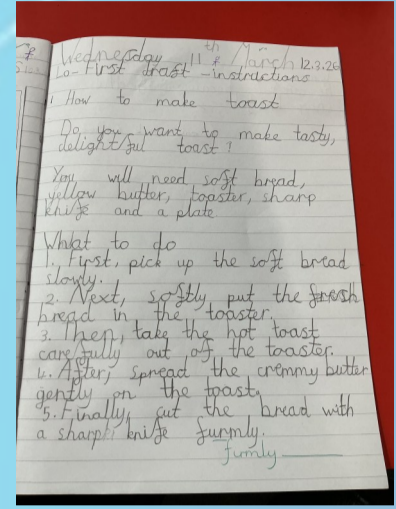 Wednesday 11th March 12.3.26
Lo- First draft - instructions
How to make toast
Do you want to make tasty,
delightful toast?
You will need soft bread,
yellow butter, toaster, sharp
knife and a plate
What to do
1. First, pick up the soft bread
slowly.
2. Next, softly put the fresh
bread in the toaster.
3. Then, take the hot toast
carefully out of the toaster.
4. After, spread the cremmy butter
gently on the toast.
5. Finally, cut the bread with
a sharp knife furmly.
furmly